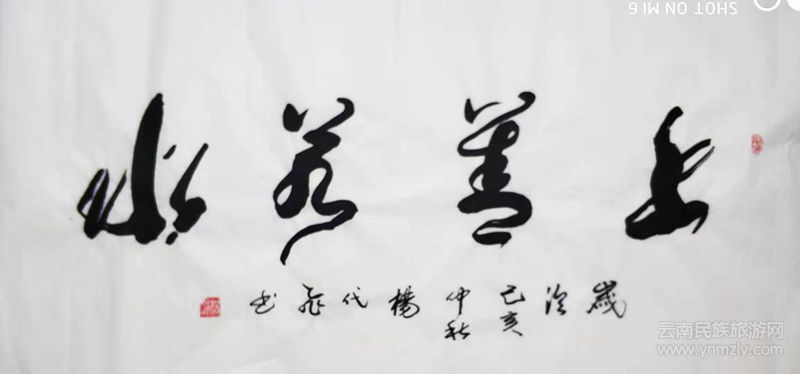 SHOT ON MI 6
上善若水
歲次己亥仲秋楊代飛书
云南民族旅游网
www.ynmzly.com